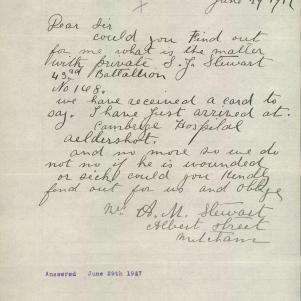 June 29 191
Dear Sir
could you Find out
for me what is the matter
with private S. J. Stewart
43rd Battallion
No 168.
we have received a card to
say. I have Just arrived at.
Cambrige Hospital
aeldershot.
and no more so we do
not no if he is wounded
or sick could you Kindly
find out for us and oblige
A. M. Stewart
Albert Street
Mitcham
Answered June 29th 1917